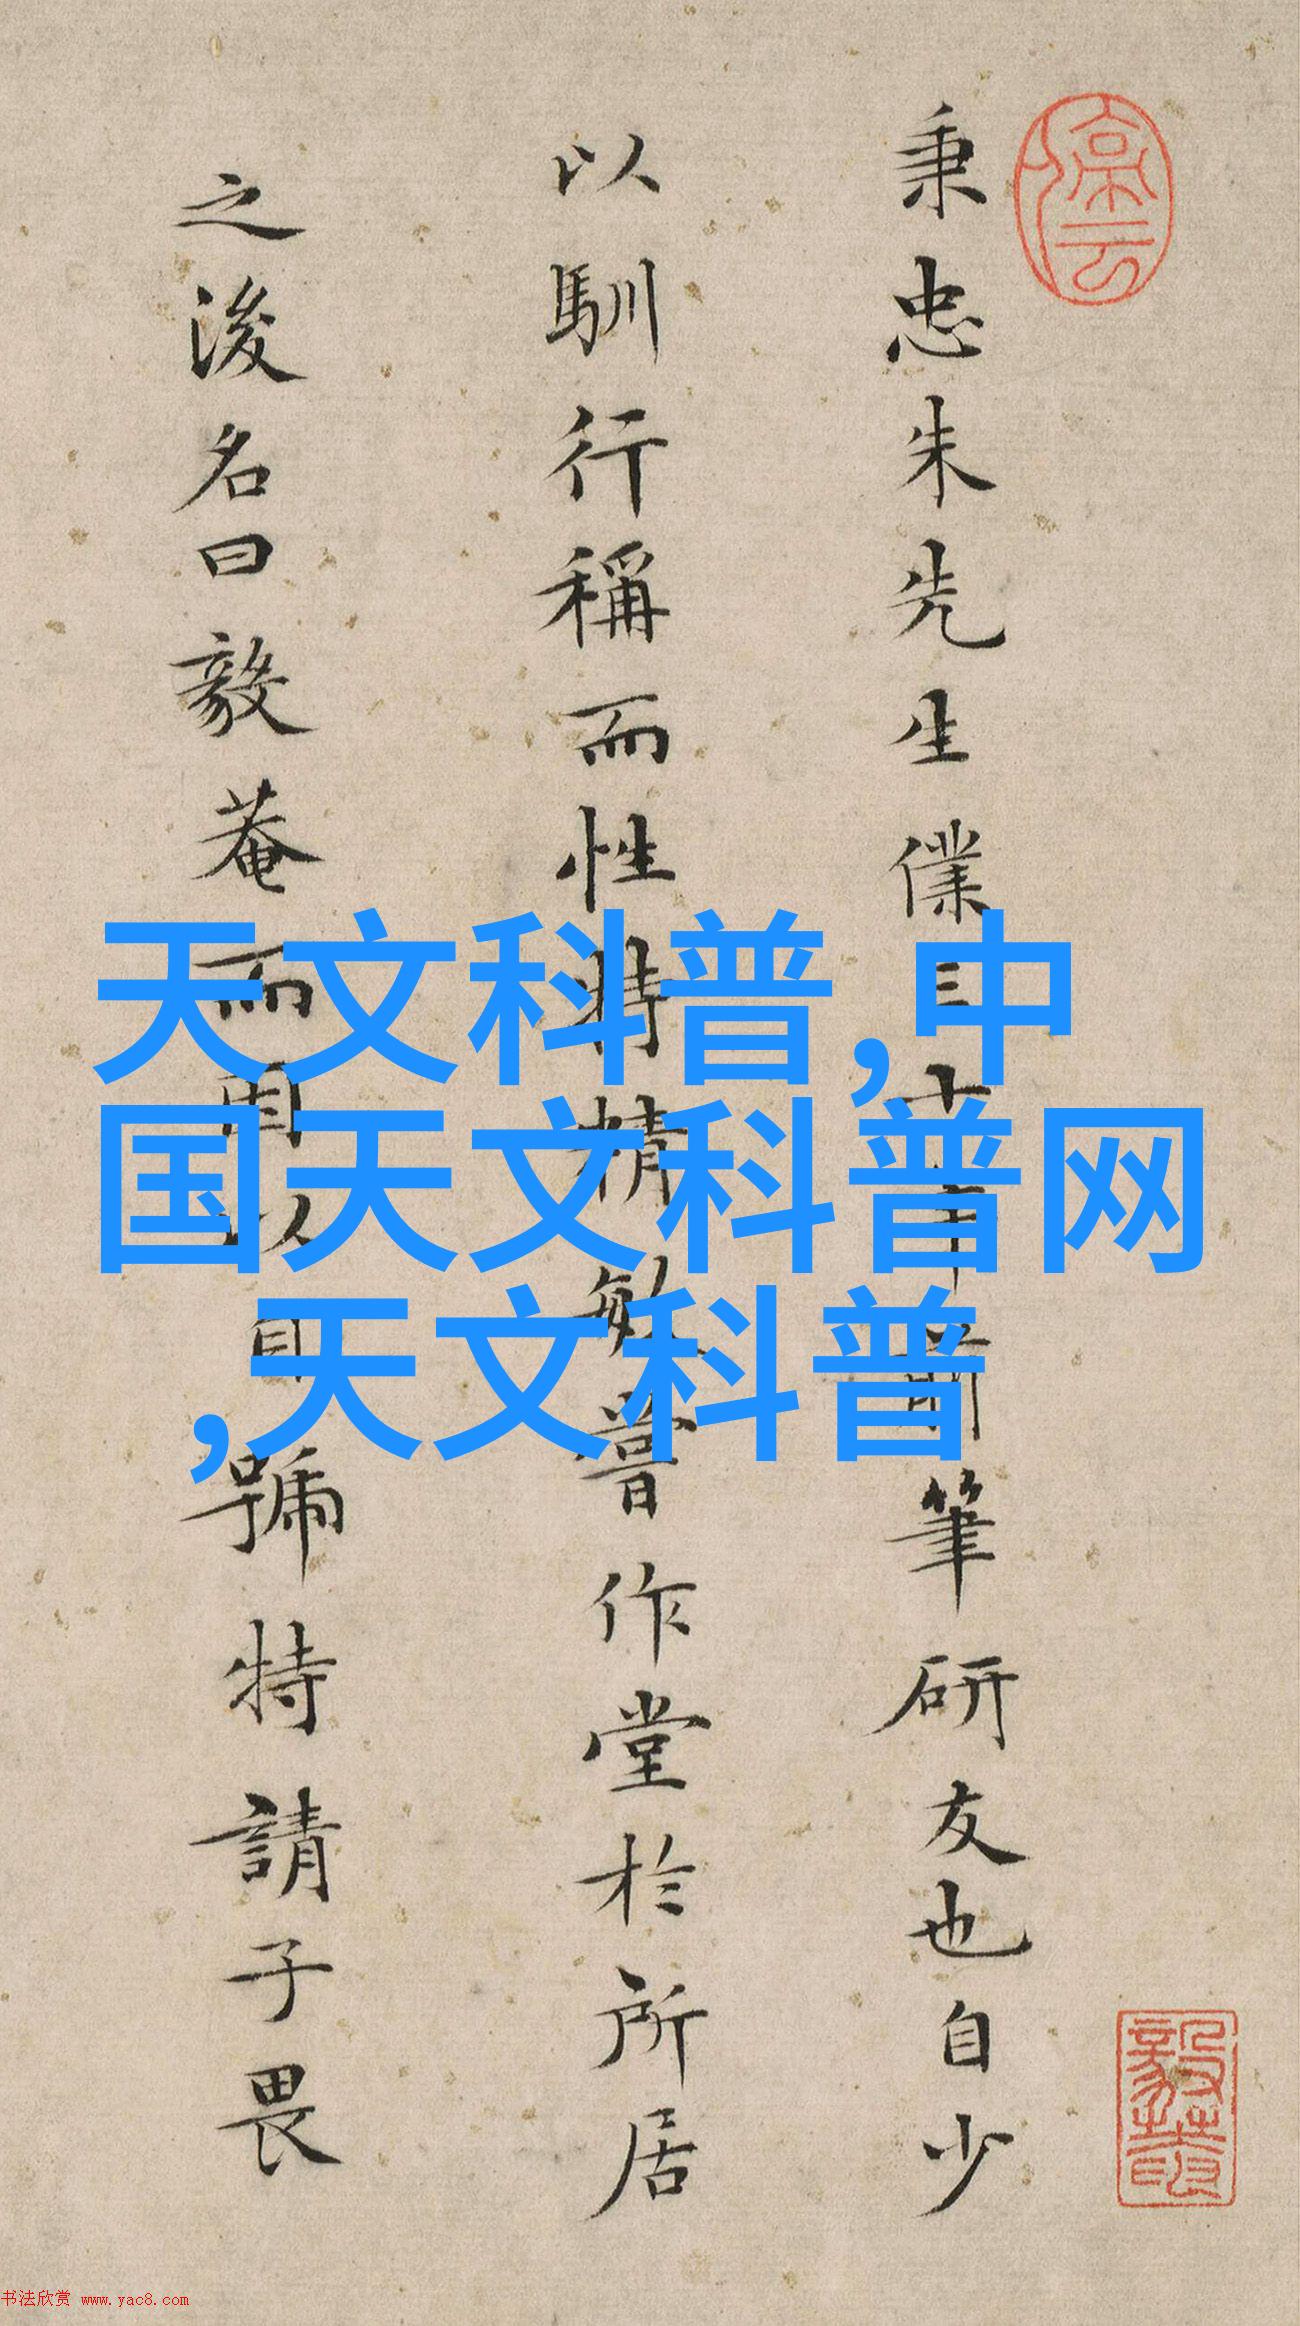 秉忠朱先生僕三十年前筆研友也自少
以馴行稱而性特精敏嘗作堂於所居
之後名曰毅菴而因以自號特請予畏
天文科普,中
国天文科普网
,天文科普
书法欣赏 www.yac8.com